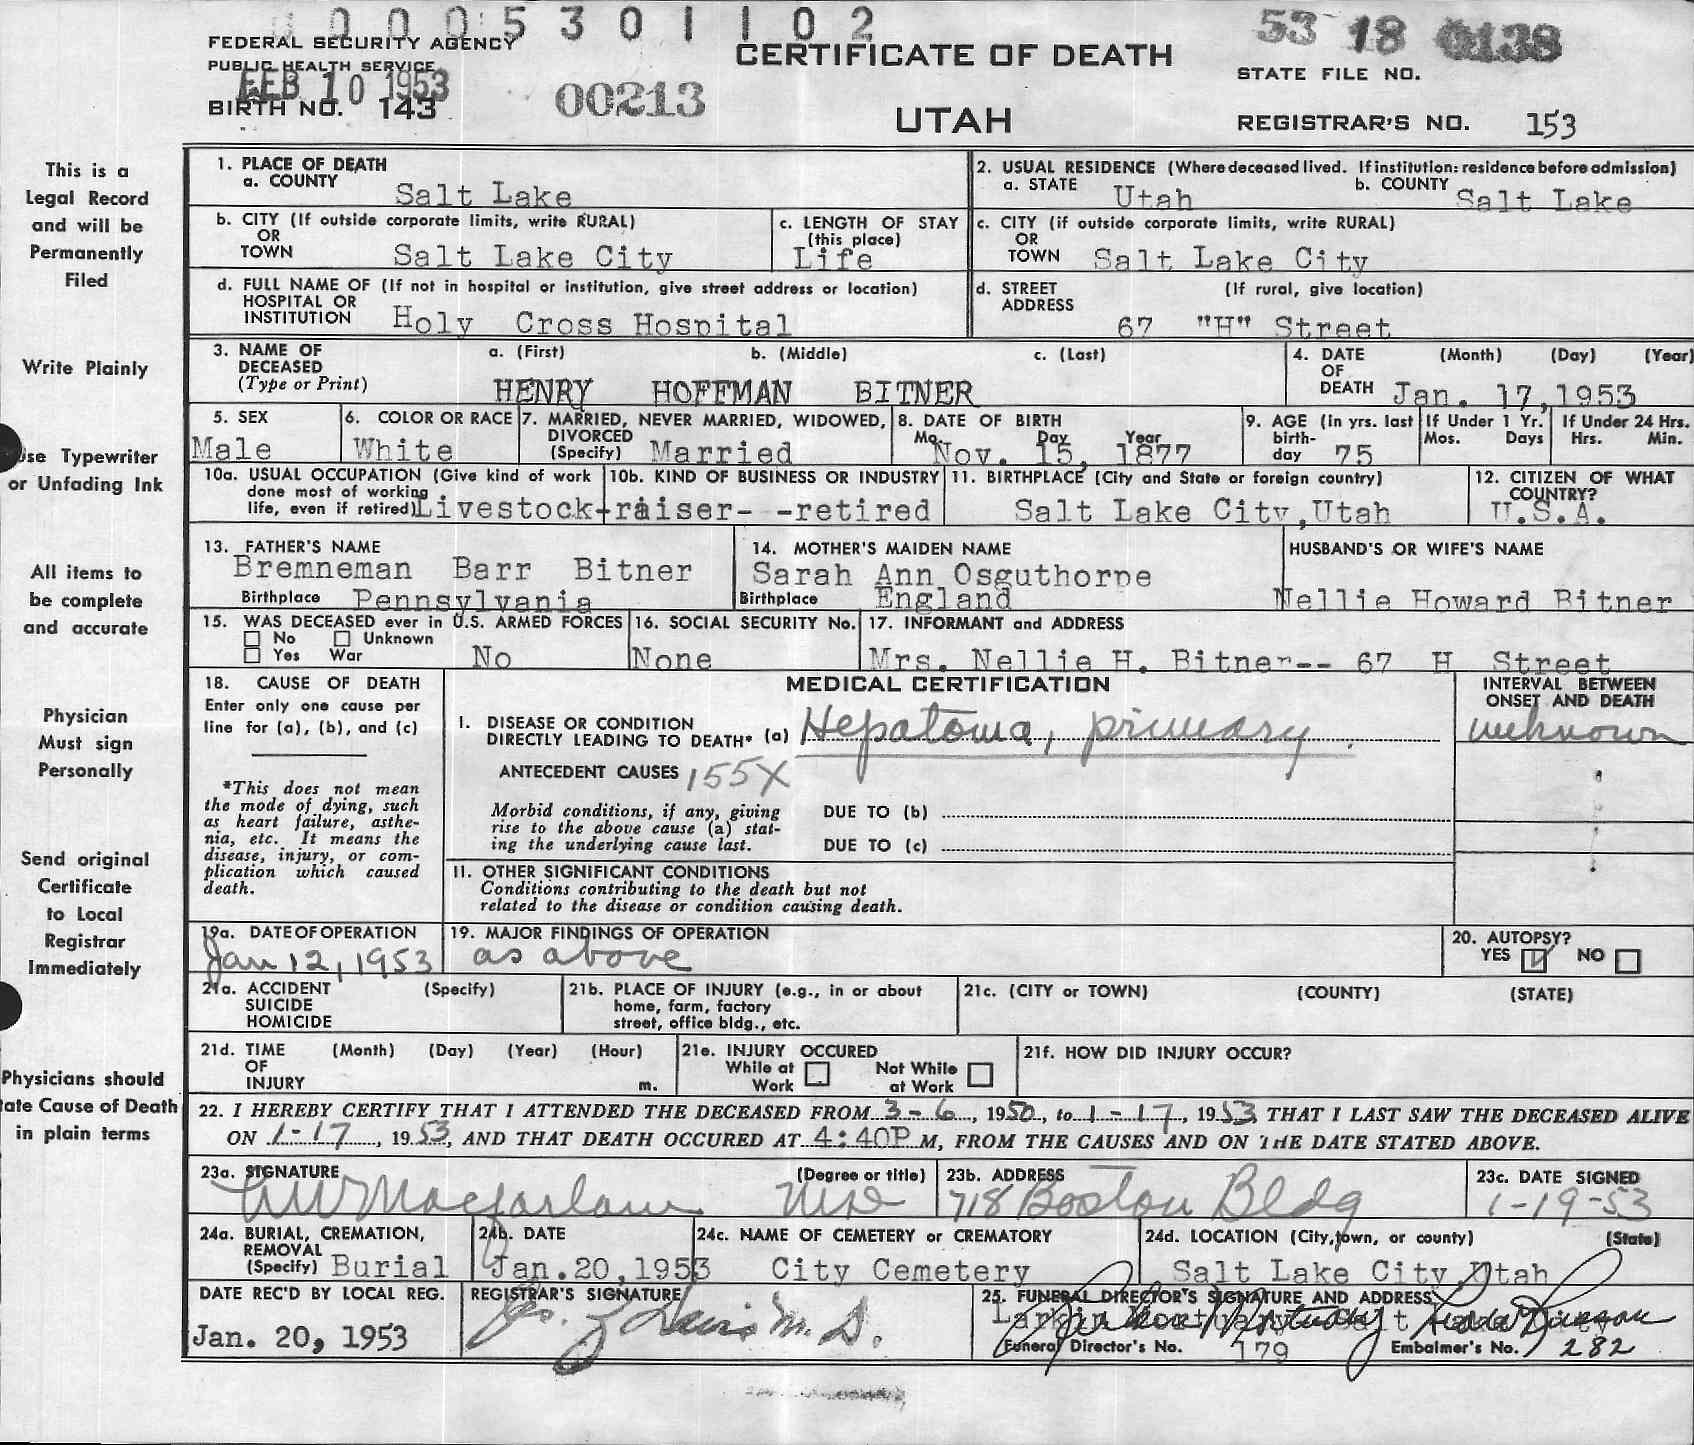 0 0 0 5 3 0 1 1 0 2
53 18 0138
FEDERAL SECURITY AGENCY
PUBLIC HEALTH SERVICE
FEB 10 1953
BIRTH NO. 143
00213
CERTIFICATE OF DEATH
UTAH
STATE FILE NO.
REGISTRAR'S NO. 153
This is a
Legal Record
and will be
Permanently
Filed
Write Plainly
Use Typewriter
or Unfading Ink
All items to
be complete
and accurate
Physician
Must sign
Personally
Send original
Certificate
to Local
Registrar
Immediately
Physicians should
tate Cause of Death
in plain terms
1. PLACE OF DEATH
a. COUNTY Salt Lake
2. USUAL RESIDENCE (Where deceased lived. If institution: residence before admission)
a. STATE Utah b. COUNTY Salt Lake
b. CITY (If outside corporate limits, write RURAL)
OR
TOWN Salt Lake City
c. LENGTH OF STAY
(this place)
Life
c. CITY (if outside corporate limits, write RURAL)
OR
TOWN Salt Lake City
d. FULL NAME OF (If not in hospital or institution, give street address or location)
HOSPITAL OR
INSTITUTION Holy Cross Hospital
d. STREET (If rural, give location)
ADDRESS
67 "H" Street
3. NAME OF a. (First) b. (Middle) c. (Last)
DECEASED
(Type or Print) HENRY HOFFMAN BITNER
4. DATE (Month) (Day) (Year)
OF
DEATH Jan. 17, 1953
5. SEX
Male
6. COLOR OR RACE
White
7. MARRIED, NEVER MARRIED, WIDOWED,
DIVORCED
(Specify) Married
8. DATE OF BIRTH
Mo. Day Year
Nov. 15, 1877
9. AGE (in yrs. last
birth-
day 75
If Under 1 Yr.
Mos. Days
If Under 24 Hrs.
Hrs. Min.
10a. USUAL OCCUPATION (Give kind of work
done most of working
life, even if retired) Livestock-raiser- -retired
10b. KIND OF BUSINESS OR INDUSTRY
11. BIRTHPLACE (City and State or foreign country)
Salt Lake City, Utah
12. CITIZEN OF WHAT
COUNTRY?
U.S.A.
13. FATHER'S NAME
Bremneman Barr Bitner
Birthplace Pennsylvania
14. MOTHER'S MAIDEN NAME
Sarah Ann Osguthorpe
Birthplace England
HUSBAND'S OR WIFE'S NAME
Nellie Howard Bitner
15. WAS DECEASED ever in U.S. ARMED FORCES
No Unknown
Yes War No
16. SOCIAL SECURITY No.
None
17. INFORMANT and ADDRESS
Mrs. Nellie H. Bitner-- 67 H Street
18. CAUSE OF DEATH
Enter only one cause per
line for (a), (b), and (c)
*This does not mean
the mode of dying, such
as heart failure, asthe-
nia, etc. It means the
disease, injury, or com-
plication which caused
death.
MEDICAL CERTIFICATION
INTERVAL BETWEEN
ONSET AND DEATH
I. DISEASE OR CONDITION
DIRECTLY LEADING TO DEATH* (a) Hepatoma, primary. unknown
ANTECEDENT CAUSES 155X
Morbid conditions, if any, giving
rise to the above cause (a) stat-
ing the underlying cause last.
DUE TO (b)
DUE TO (c)
11. OTHER SIGNIFICANT CONDITIONS
Conditions contributing to the death but not
related to the disease or condition causing death.
19a. DATE OF OPERATION
Jan 12, 1953
19. MAJOR FINDINGS OF OPERATION
as above
20. AUTOPSY?
YES NO
21a. ACCIDENT (Specify)
SUICIDE
HOMICIDE
21b. PLACE OF INJURY (e.g., in or about
home, farm, factory
street, office bldg., etc.
21c. (CITY or TOWN) (COUNTY) (STATE)
21d. TIME (Month) (Day) (Year) (Hour)
OF
INJURY m.
21e. INJURY OCCURED
While at Not While
Work at Work
21f. HOW DID INJURY OCCUR?
22. I HEREBY CERTIFY THAT I ATTENDED THE DECEASED FROM 3-6, 1950, to 1-17, 1953 THAT I LAST SAW THE DECEASED ALIVE
ON 1-17, 1953, AND THAT DEATH OCCURED AT 4:40P M, FROM THE CAUSES AND ON THE DATE STATED ABOVE.
23a. SIGNATURE (Degree or title)
Macfarlane MD
23b. ADDRESS
718 Boston Bldg
23c. DATE SIGNED
1-19-53
24a. BURIAL, CREMATION,
REMOVAL
(Specify) Burial
24b. DATE
Jan. 20, 1953
24c. NAME OF CEMETERY or CREMATORY
City Cemetery
24d. LOCATION (City, town, or county) (State)
Salt Lake City Utah
DATE REC'D BY LOCAL REG.
Jan. 20, 1953
REGISTRAR'S SIGNATURE
M. D.
25. FUNERAL DIRECTOR'S SIGNATURE AND ADDRESS
Larkin Mortuary
Funeral Director's No. 179 Embalmer's No. 282